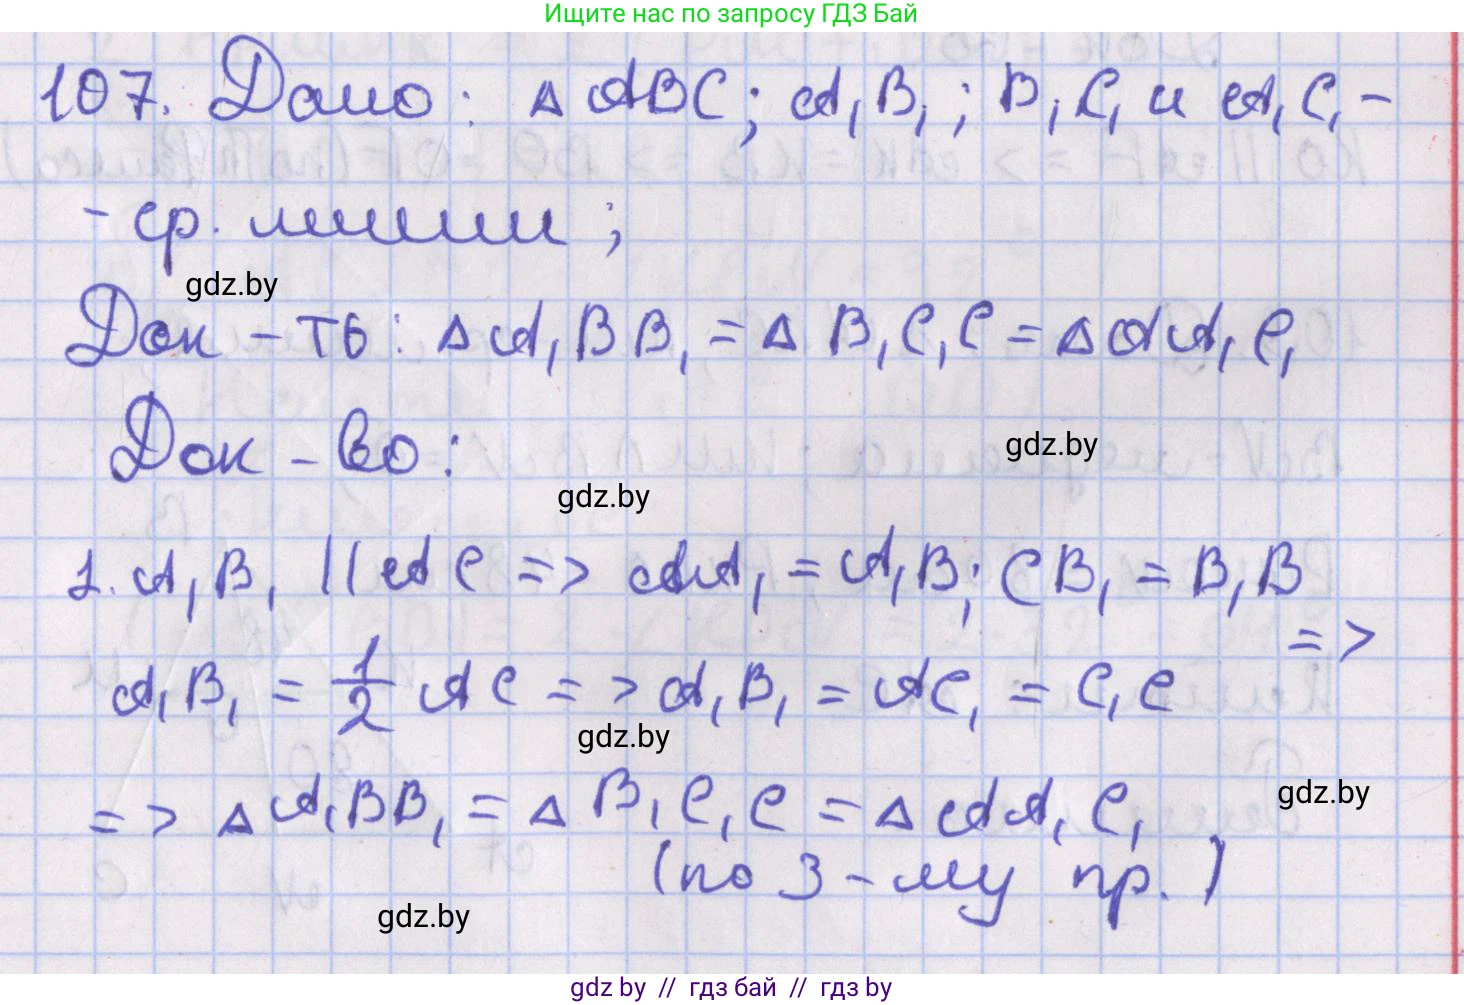 Ищите нас по запросу ГДЗ Бай
107. Дано: △ ABC; A₁B₁; B₁C₁ и A₁C₁ -
- ср. линии;
gdz.by
Док-ть: △ A₁BB₁ = △ B₁C₁C = △ AA₁C₁
Док-во:
gdz.by
gdz.by
1. A₁B₁ || AC => AA₁ = A₁B; CB₁ = B₁B
=>
A₁B₁ = 1/2 AC => A₁B₁ = AC₁ = C₁C
gdz.by
gdz.by
=> △ A₁BB₁ = △ B₁C₁C = △ AA₁C₁
(по 3-му пр.)
gdz.by
gdz by // гдз бай // гдз by